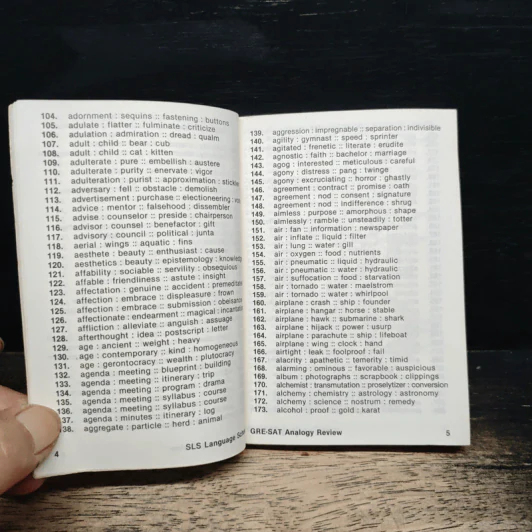 104. adornment : sequins :: fastening : buttons
105. adulate : flatter :: fulminate : criticize
106. adulation : admiration :: dread : qualm
107. adult : child :: bear : cub
108. adult : child :: cat : kitten
109. adulterate : pure :: embellish : austere
110. adulterate : purity :: enervate : vigor
111. adulteration : purist :: approximation : stickle
112. adversary : fell :: obstacle : demolish
113. advertisement : purchase :: electioneering :
114. advice : mentor :: falsehood : dissembler
115. advise : counselor :: preside : chairperson
116. advisor : counsel :: benefactor : gift
117. advisory : council :: political : junta
118. aerial : wings :: aquatic : fins
119. aesthete : beauty :: enthusiast : cause
120. aesthetics : beauty :: epistemology : knowledg
121. affability : sociable :: servility : obsequious
122. affable : friendliness :: astute : insight
123. affectation : genuine :: accident : premeditate
124. affection : embrace :: displeasure : frown
125. affection : embrace :: submission : obeisance
126. affectionate : endearment :: magical : incantatio
127. affliction : alleviate :: anguish : assuage
128. afterthought : idea :: postscript : letter
129. age : ancient :: weight : heavy
130. age : contemporary :: kind : homogeneous
131. age : gerontocracy :: wealth : plutocracy
132. agenda : meeting :: blueprint : building
133. agenda : meeting :: itinerary : trip
134. agenda : meeting :: program : drama
135. agenda : meeting :: syllabus : course
136. agenda : meeting :: syllabus : course
137. agenda : minutes :: itinerary : log
138. aggregate : particle :: herd : animal
4 SLS Language
139. aggression : impregnable :: separation : indivisible
140. agility : gymnast :: speed : sprinter
141. agitated : frenetic :: literate : erudite
142. agnostic : faith :: bachelor : marriage
143. agog : interested :: meticulous : careful
144. agony : distress :: pang : twinge
145. agony : excruciating :: horror : ghastly
146. agreement : contract :: promise : oath
147. agreement : nod :: consent : signature
148. agreement : nod :: indifference : shrug
149. aimless : purpose :: amorphous : shape
150. aimlessly : ramble :: unsteadily : totter
151. air : fan :: information : newspaper
152. air : inflate :: liquid : filter
153. air : lung :: water : gill
154. air : oxygen :: food : nutrients
155. air : pneumatic :: liquid : hydraulic
156. air : pneumatic :: water : hydraulic
157. air : suffocation :: food : starvation
158. air : tornado :: water : maelstrom
159. air : tornado :: water : whirlpool
160. airplane : crash :: ship : founder
161. airplane : hangar :: horse : stable
162. airplane : hawk :: submarine : shark
163. airplane : hijack :: power : usurp
164. airplane : parachute :: ship : lifeboat
165. airplane : wing :: clock : hand
166. airtight : leak :: foolproof : fail
167. alacrity : apathetic :: temerity : timid
168. alarming : ominous :: favorable : auspicious
169. album : photographs :: scrapbook : clippings
170. alchemist : transmutation :: proselytizer : conversion
171. alchemy : chemistry :: astrology : astronomy
172. alchemy : science :: nostrum : remedy
173. alcohol : proof :: gold : karat
GRE-SAT Analogy Review 5